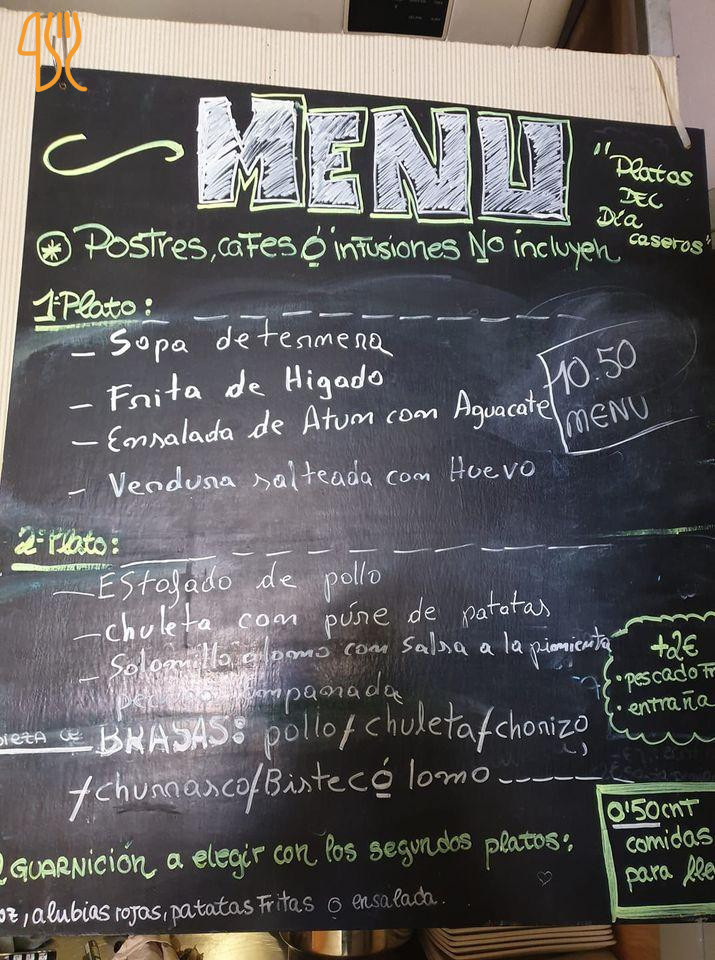 MENU
"Platos
DEL
Día
caseros"
* Postres, cafes ó infusiones No incluyen
1º Plato:
- Sopa de ternera
- Frita de Higado
- Ensalada de Atum com Aguacate
10.50
MENU
- Verdura salteada com Huevo
2º Plato:
- Estofado de pollo
- chuleta com púre de patatas
- Solomillo o lomo com salsa a la pimienta
+2€
• pescado Fr
• entraña
BRASAS: pollo/chuleta/chorizo,
/churrasco/Bistec ó lomo
0'50 cnt
comidas
para lle
GUARNICIÓN a elegir con los segundos platos:
oz, alubias rojas, patatas Fritas o ensalada.